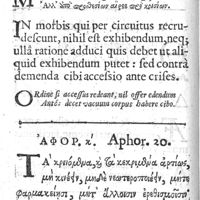 M
In morbis qui per circuitus recru-
descunt, nihil est exhibendum, neq;
ulla ratione adduci quis debet ut ali-
quid exhibendum putet: sed contrà
demenda cibi accessio ante crises.
ORdine si accessus redeant, nil offer edendum
Antè: decet vacuum corpus habere cibo.
ΑΦΟΡ. κ. Aphor. 20.
Τὰ κρινόμενα, ἢ τὰ κεκριμένα ἀρτίως,
μὴ κινέειν, μηδὲ νεωτεροποιέειν, μήτε
φαρμακείῃσι, μήτ' ἄλλοισιν ἐρεθισμοῖσιν